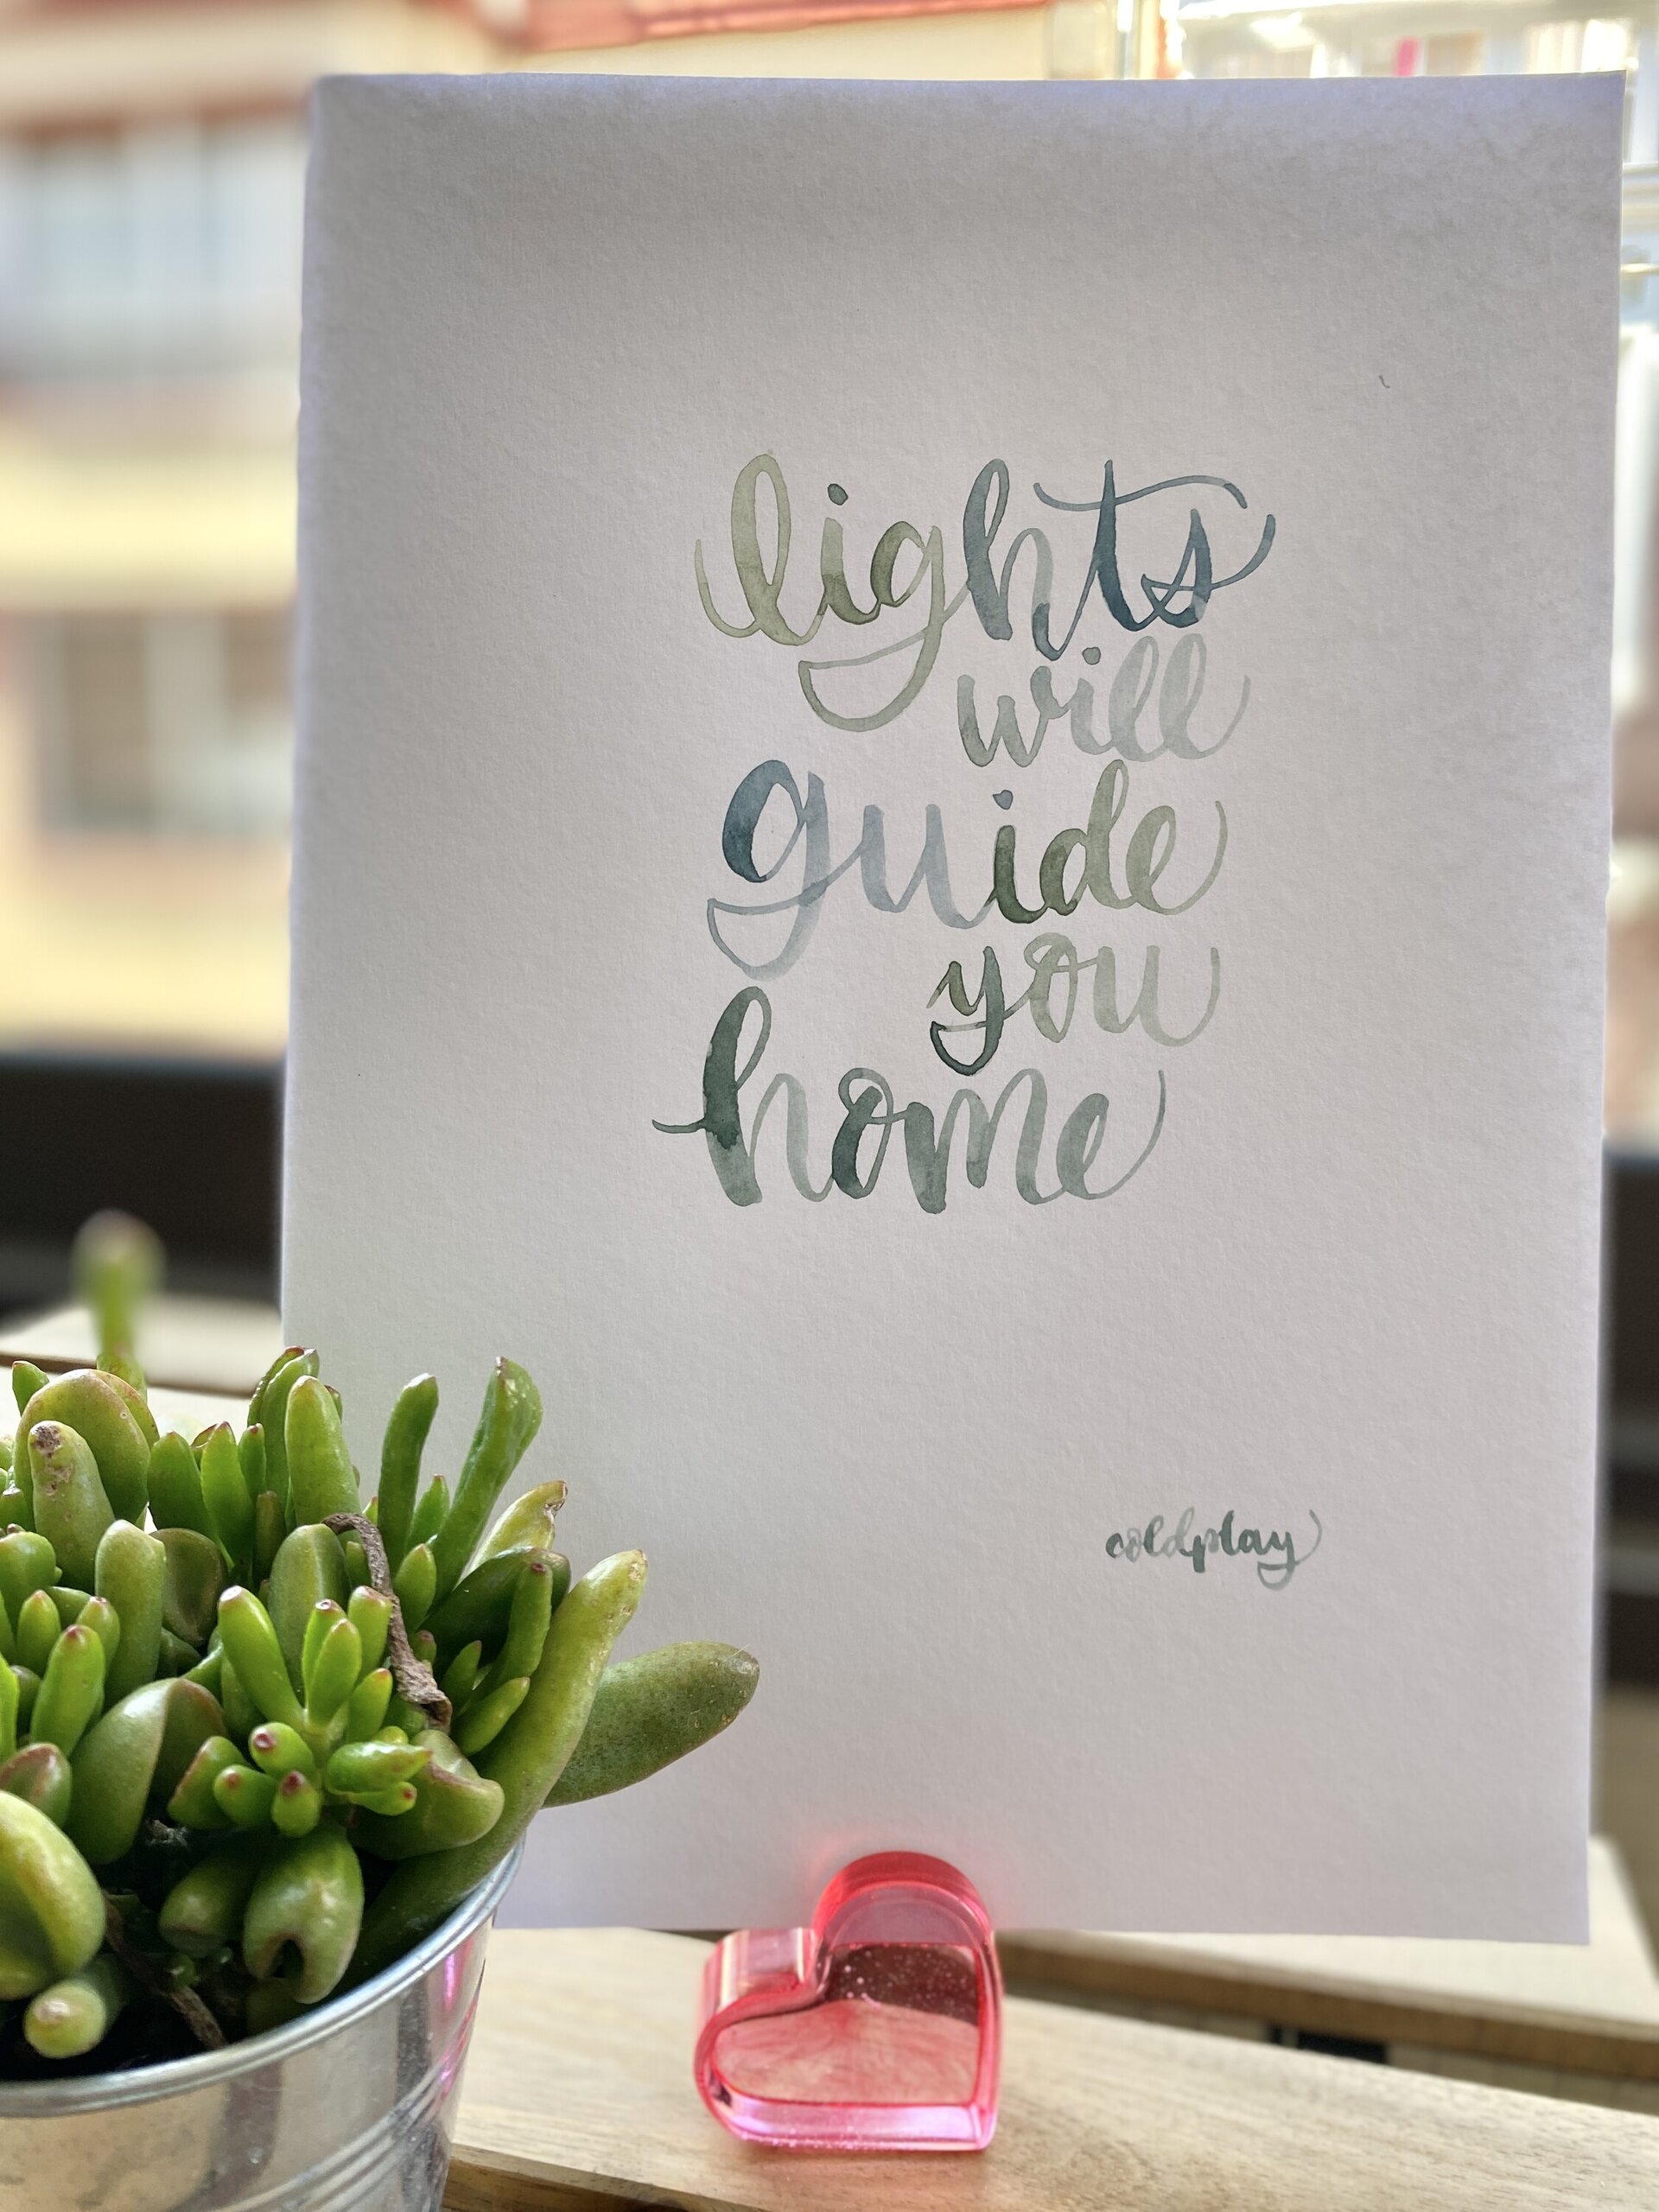 lights
will
guide
you
home
coldplay